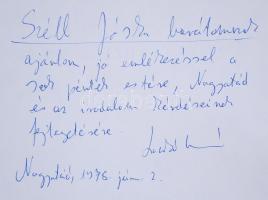 Széll Jóska barátomnak
ajánlom, jó emlékezéssel a
sok péntek estére, Nagyatád
és az irodalom kérdéseinek
fejtegetésére.
Nagyatád, 1976. jún. 2.